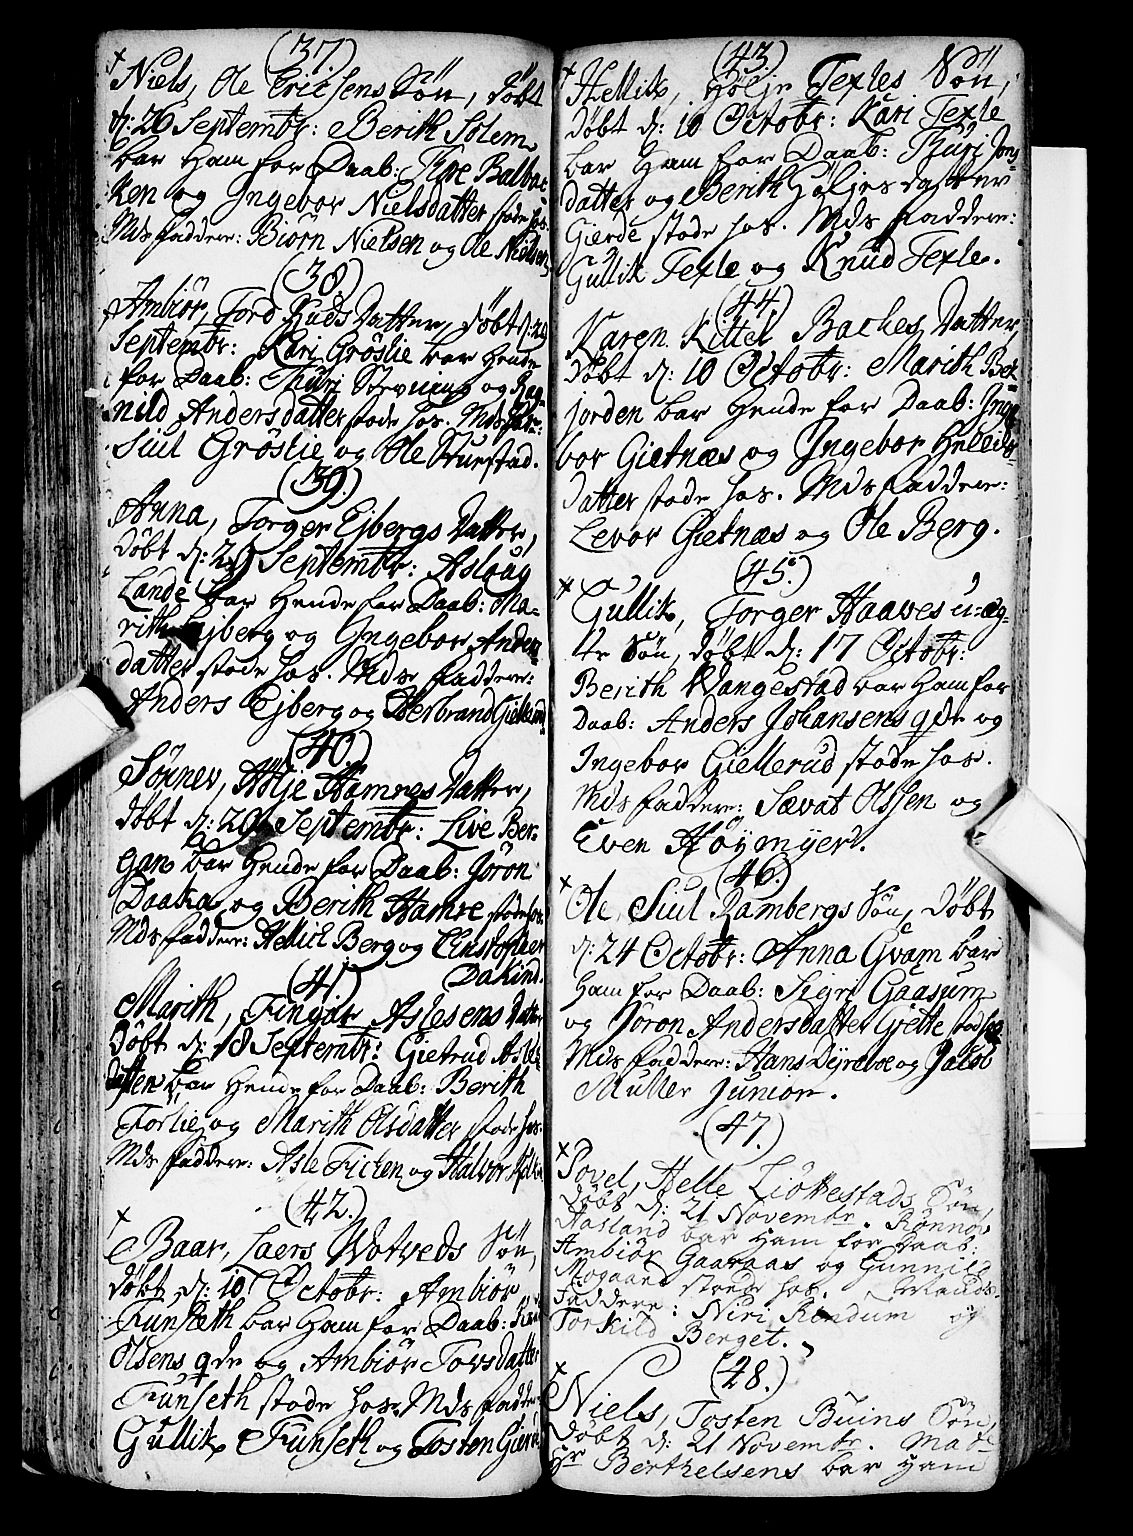 (37.)
Niels, Ole Ericsens Søn, Døbt
d: 26 Septembr: Berith Solem
bar Ham for Daab: Thore Balbac
ken og Ingebor Nielsdatter stode hos.
Mds faddere: Biørn Nielsen og Ole Nielsen
(38)
Ambiør, Tord Ruds Datter, Døbt d: 29
Septembr: Kari Grøslie bar Hende
for Daab: Thuri og Rag-
nild Andersdatter stode hos. Mds faddere:
Siul Grøslie og Ole Stuestad.
(39.)
Anna, Torger Ejbergs Datter,
Døbt d: 29 Septembr: Aslaug
Lande bar Hende for Daab: Ma-
rith Ejberg og Ingebor Anders
datter stode hos. Mds faddere:
Anders Ejberg og Herbrand Giellerud
(40.)
Sønnev, Hølje Hamres Datter,
Døbt d: 29 Septembr: Live Ber-
gan bar Hende for Daab: Jøron
Daaka og Berith Hamre stode hos.
Mds faddere: Hellich Berg og Christopher
Dakind.
(41.)
Marith, Fingar Aslesens Datter
Døbt d: 18 Septembr: Gietrud Asle
datter bar Hende for Daab: Berith
Torlie og Marith Olsdatter stode hos.
Mds faddere: Asle og Halvor
(42.)
Baar, Laers Wotveds Søn,
Døbt d: 10 Octobr: Ambiør
Funseth bar Ham for Daab:
Olsens qde og Ambiør Torsdatter
Funseth stode hos. Mds faddere
Gullik Funseth og Tosten
(43.)
Hellik, Hølje Texles Søn,
Døbt d: 10 Octobr: Kari Texle
bar Ham for Daab: Thuri Jons
datter og Berith Høljesdatter
Gierde stode hos. Mds faddere:
Gullik Texle og Knud Texle.
(44.)
Karen Kittel Baches Datter,
Døbt d: 10 Octobr: Marith Bek-
jorden bar Hende for Daab: Inge
bor Gietnæs og Ingebor Helliks-
datter stode hos. Mds faddere:
Levor Gietnæs og Ole Berg.
(45.)
Gullik, Torger Haawes u-æg-
te Søn, døbt d: 17 Octobr:
Berith Wangestad bar Ham for
Daab: Anders Johansens qde og
Ingebor Giellerud stode hos.
Mds faddere: Sævat Olssen og
Even Høymyer.
(46.)
Ole, Siul Rambergs Søn, Døbt
d: 24 Octobr: Anna Gvam bar
Ham for Daab: Sigri Gaasum
og Jøron Andersdatter Grette stod hos
Mds faddere: Hans Dyreboe og Jacob
Muller Junior.
(47.)
Povel, Helle Liokestads Søn,
Døbt d: 21 Novembr. Rønnov
Hasland bar Ham for Daab:
Ambiør Gaaraas og Gunnild
Mogaard stode hos. Mands-
Faddere: Niri Rondum og
Torkild Berget.
(48.)
Niels, Tosten Buins Søn,
Døbt d: 21 Novembr. Mad
Hr Berthelsens bar Ham